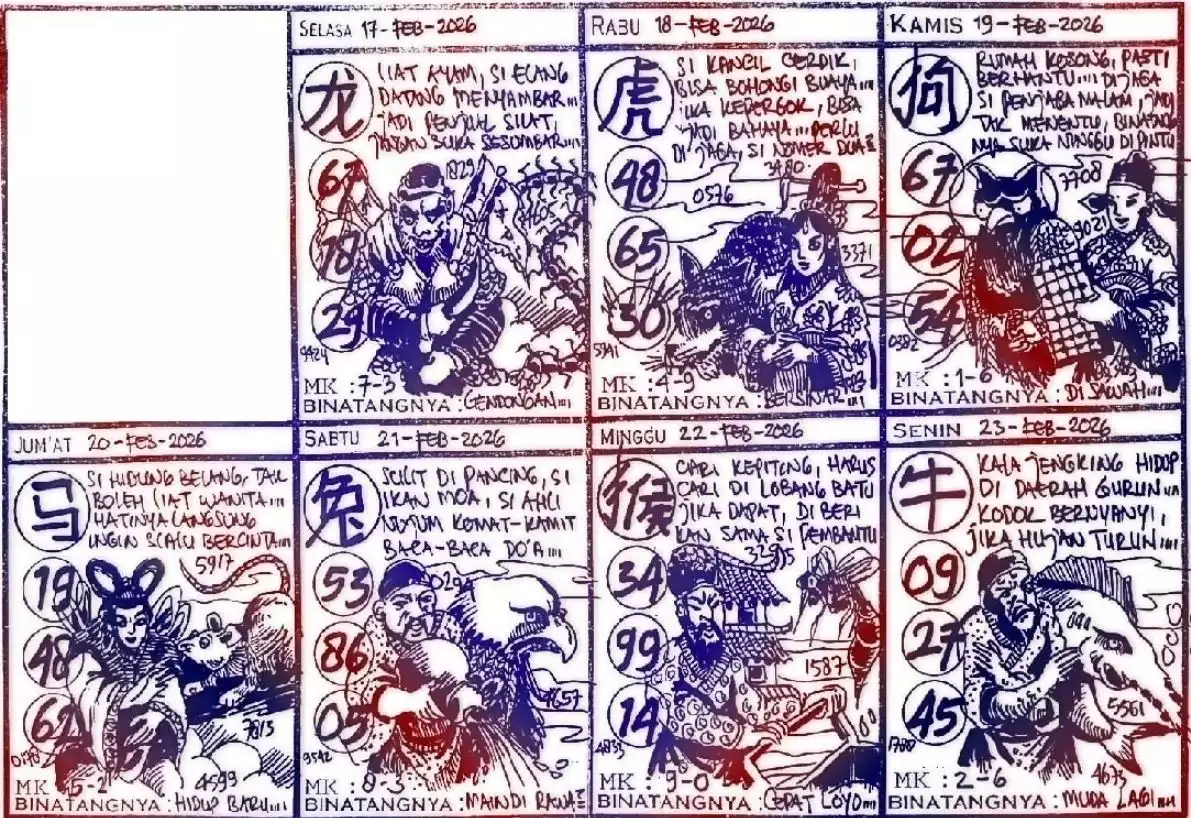 SELASA 17-FEB-2026
龙
LIAT AYAM, SI ELANG
DATANG MENYAMBAR....
JADI PENJUAL SILAT,
JANGAN SUKA SESUMBAR....
67
18
29
1829
9424
MK : 7-3
BINATANGNYA : GENDONGAN....
RABU 18-FEB-2026
虎
SI KANCIL CERDIK,
BISA BOHONGI BUAYA....
JIKA KEPERGOK, BISA
JADI BAHAYA.... PERLU
DI JAGA, SI NOMER DUA
48
65
30
3480
0576
3371
5341
MK : 4-9
BINATANGNYA : BERSINAR....
KAMIS 19-FEB-2026
狗
RUMAH KOSONG, PASTI
BERHANTU.... DI JAGA
SI PENJAGA MALAM, JADI
TAK MENENTU, BINATANG
NYA SUKA NINGGU DI PINTU
67
02
54
3708
9021
0382
MK : 1-6
BINATANGNYA : DI SAWAH....
JUM'AT 20-FEB-2026
马
SI HIDUNG BELANG, TAK
BOLEH LIAT WANITA....
HATINYA LANGSUNG
INGIN SLALU BERCINTA....
19
48
62
5917
7813
4599
MK : 5-2
BINATANGNYA : HIDUP BARU....
SABTU 21-FEB-2026
兔
SULIT DI PANCING, SI
IKAN MOA, SI AHLI
NUJUM KOMAT-KAMIT
BACA-BACA DO'A....
53
86
05
0294
4657
9542
MK : 8-3
BINATANGNYA : MAIN DI RAWA
MINGGU 22-FEB-2026
猴
CARI KEPITING, HARUS
CARI DI LOBANG BATU
JIKA DAPAT, DI BERI
KAN SAMA SI PEMBANTU
34
99
14
1587
4833
MK : 9-0
BINATANGNYA : CEPAT LOYO....
SENIN 23-FEB-2026
牛
KALA JENGKING HIDUP
DI DAERAH GURUN....
KODOK BERNYANYI,
JIKA HUJAN TURUN....
09
27
45
5561
1780
4673
MK : 2-6
BINATANGNYA : MUDA LAGI....